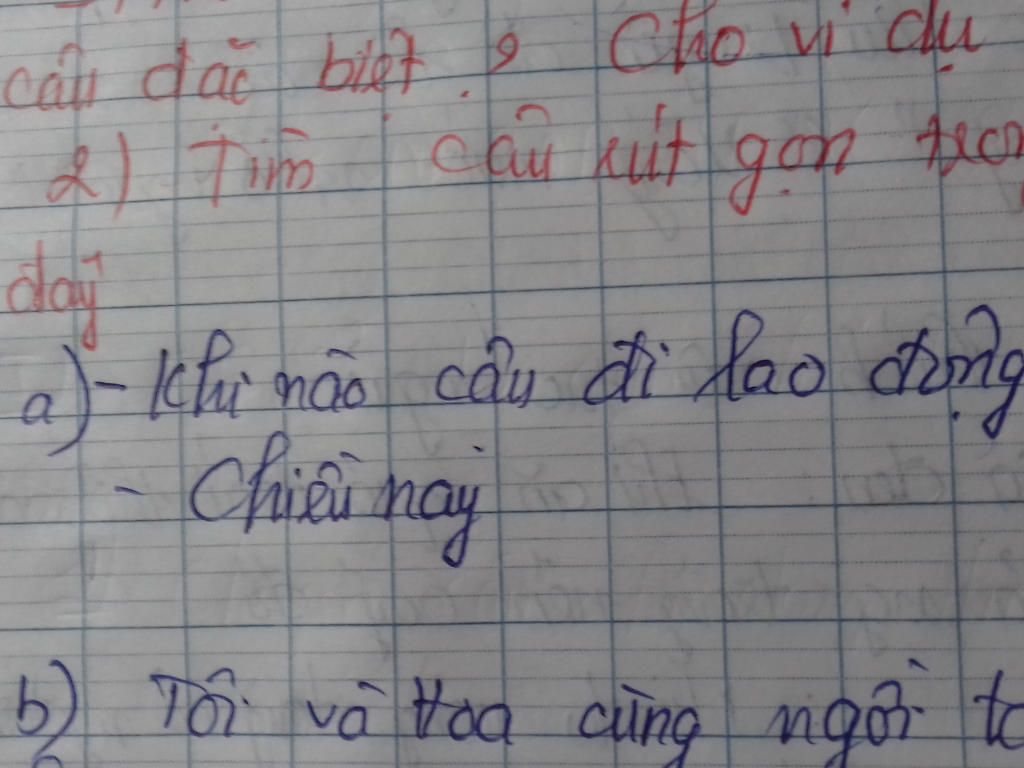 câu đặc biệt ? Cho ví dụ
2) Tìm câu rút gọn tron
đây
a) - Khi nào cậu đi lao động
- Chiều nay
b) Tôi và Hoa cùng ngồi